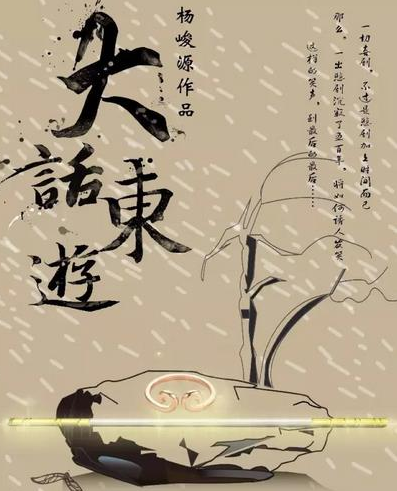 杨峻源作品
大話東遊
一切喜剧，不过是悲剧加上时间而已
那么，一出悲剧沉寂了五百年，将如何诱人发笑
这样的笑声，到最后的最后……